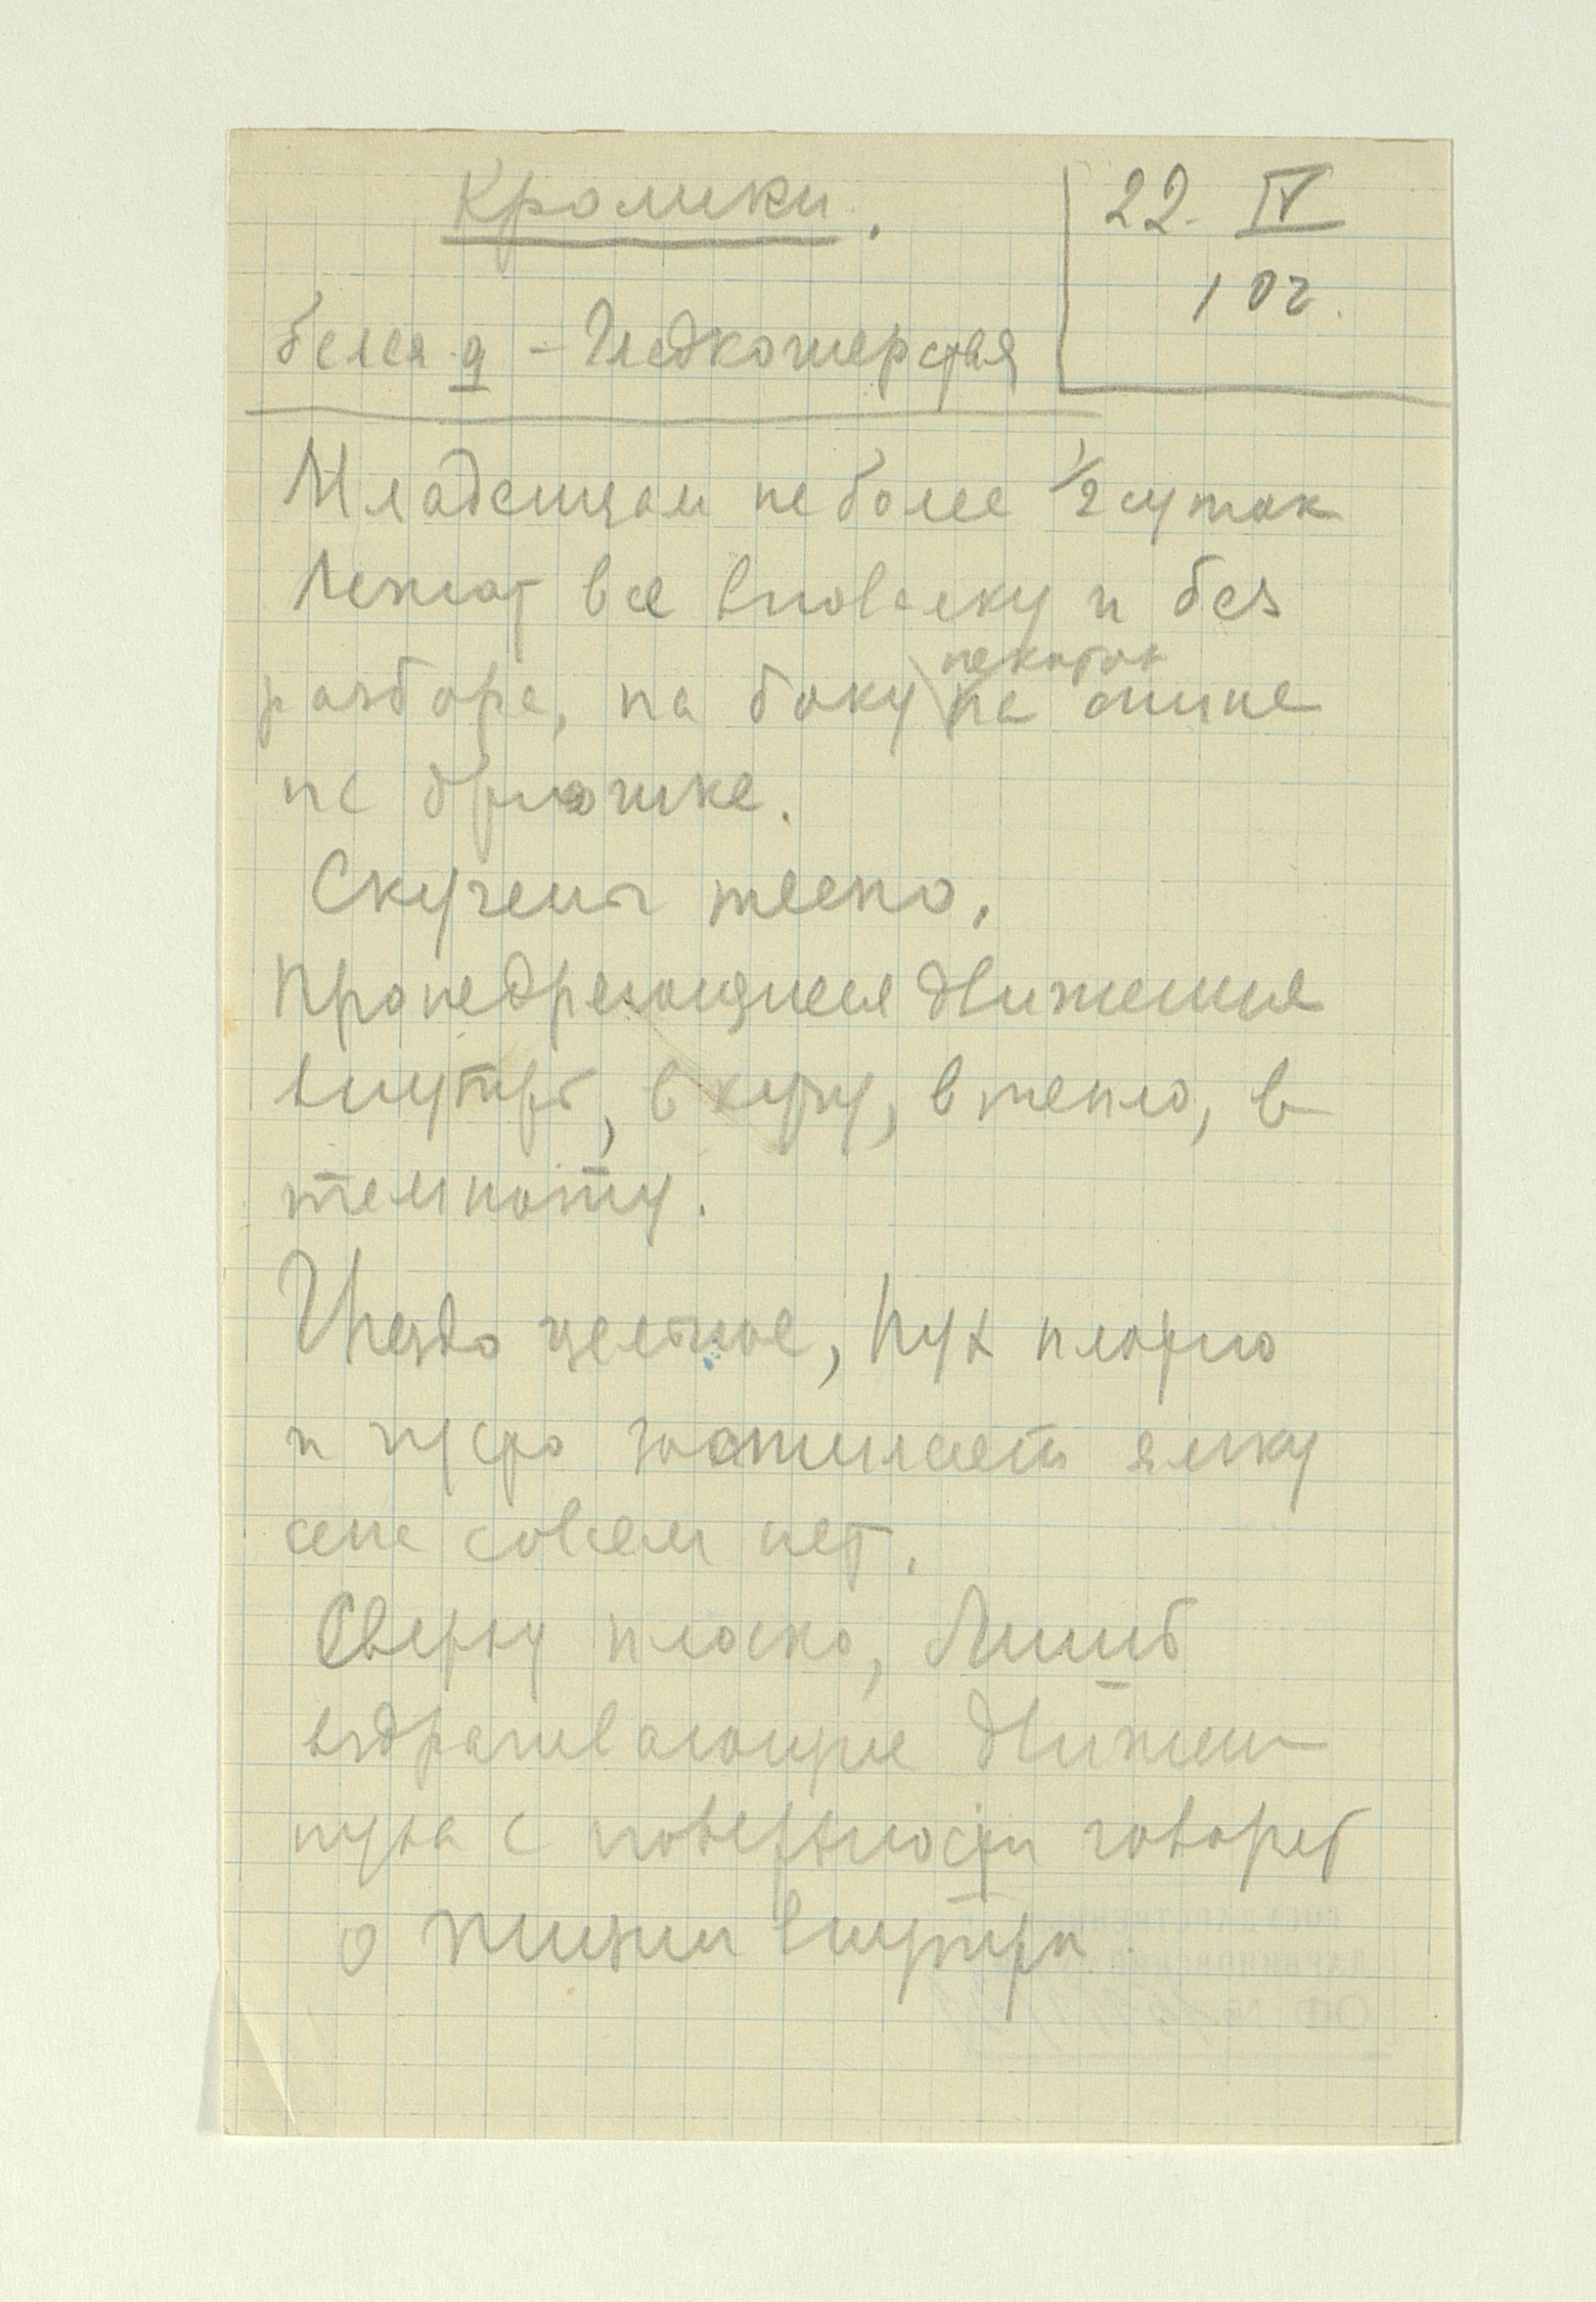 Кролики.
22 IV
10 ч.
белая ♀ – Гладкошерстая
Младенцам не более 1/2 суток
Лежат все вповалку и без
разбора, на боку на спине
некотор
на брюшке.
Скучены тесно.
движения
внутрь, в кучу, в тепло, в
темноту.
Гнездо цельное, пух плотно
и густо застилает ямку
сена совсем нет.
Сверху плоско, Лишь
вздрагивающие движен
пуха с поверхности говорят
о жизни внутри